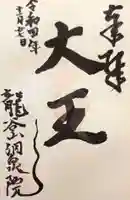 奉拝
大王
令和四年
十一月廿七日
龍谷洞泉院